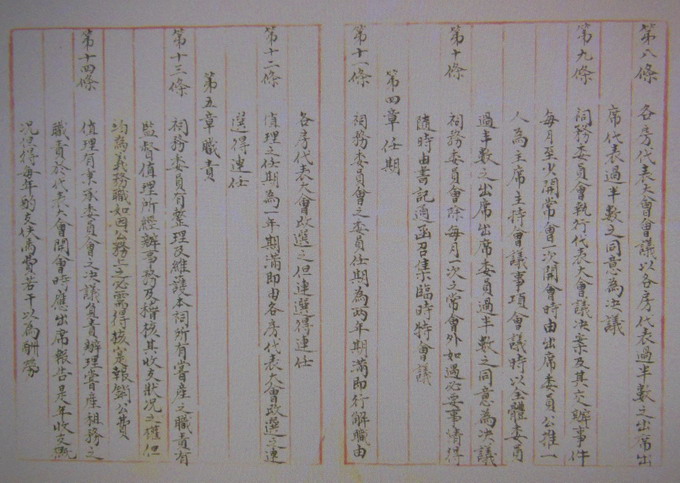 第八條 各房代表大會會議以各房代表過半數之出席出
席代表過半數之同意為決議
第九條 祠務委員會執行代表大會議決案及其交辦事件
每月至少開常會次開會時由出席委員公推一
人為主席主持會議事項會議時以全體委員
過半數之出席出席委員過半數之同意為決議
第十條 祠務委員會除每月一次之常會外如遇必要事情得
隨時由書記通函召集臨時特會議
第四章任期
第十一條 祠務委員會之委員任期為兩年期滿即行解職由
各房代表大會改選之但連選得連任
第十二條 值理之任期為一年期滿即由各房代表大會改選之連
選得連任
第五章職責
第十三條 祠務委員有整理及維護本祠所有嘗產之職責有
監督值理所經辦事務及稽核其收支狀況之權但
均為義務職如因公務上之必需得核實報銷公費
第十四條 值理有秉承委員會之決議負責辦理嘗產租務之
職責於代表大會開會時應出席報告是年收支概
況但得每年酌支伕馬費若干以為酬勞